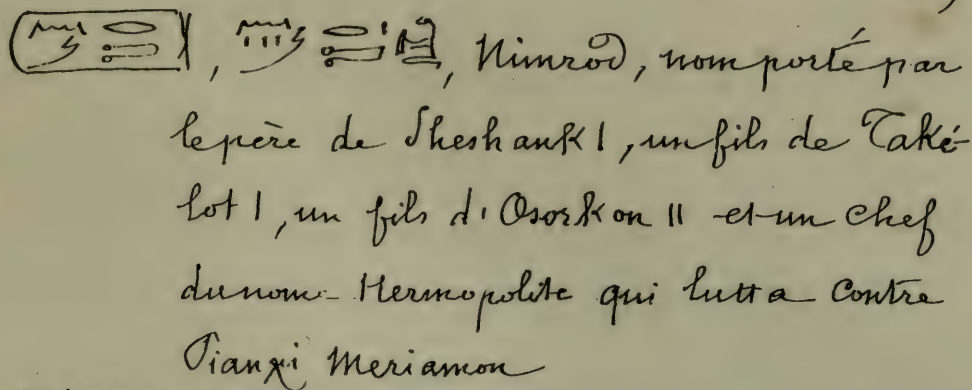 , Nimrod, nom porté par
le père de Sheshank I, un fils de Také-
lot I, un fils d'Osorkon II et un chef
du nome Hermopolite qui lutta contre
Pianχi Meriamon